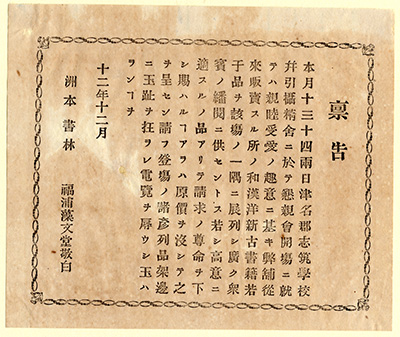 稟告
本月十三十四兩日津名郡志筑學校
幷引攝精舍ニ於テ懇親會開塲ニ就
テハ親睦愛愛ノ趣意ニ基キ弊舖從
來販賣スル所ノ和漢洋新古書籍若
干品ヲ該塲ノ一隅ニ展列シ廣ク衆
賓ノ繙閱ニ供セントス若シ高意ニ
適スルノ品アリテ請求ノ尊命ヲ下
シ賜ハルヿアラハ原價ヲ沒シテ之
ヲ呈セン請フ登塲ノ諸彥列品架邊
ニ玉趾ヲ抂ラレ電覽ヲ辱ウシ玉ハ
ランヿヲ
十二年十二月
洲本書林 福浦藻文堂敬白